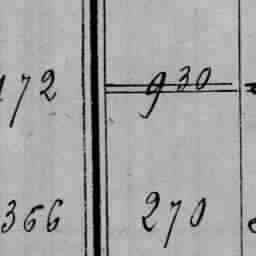 172 930
366 270